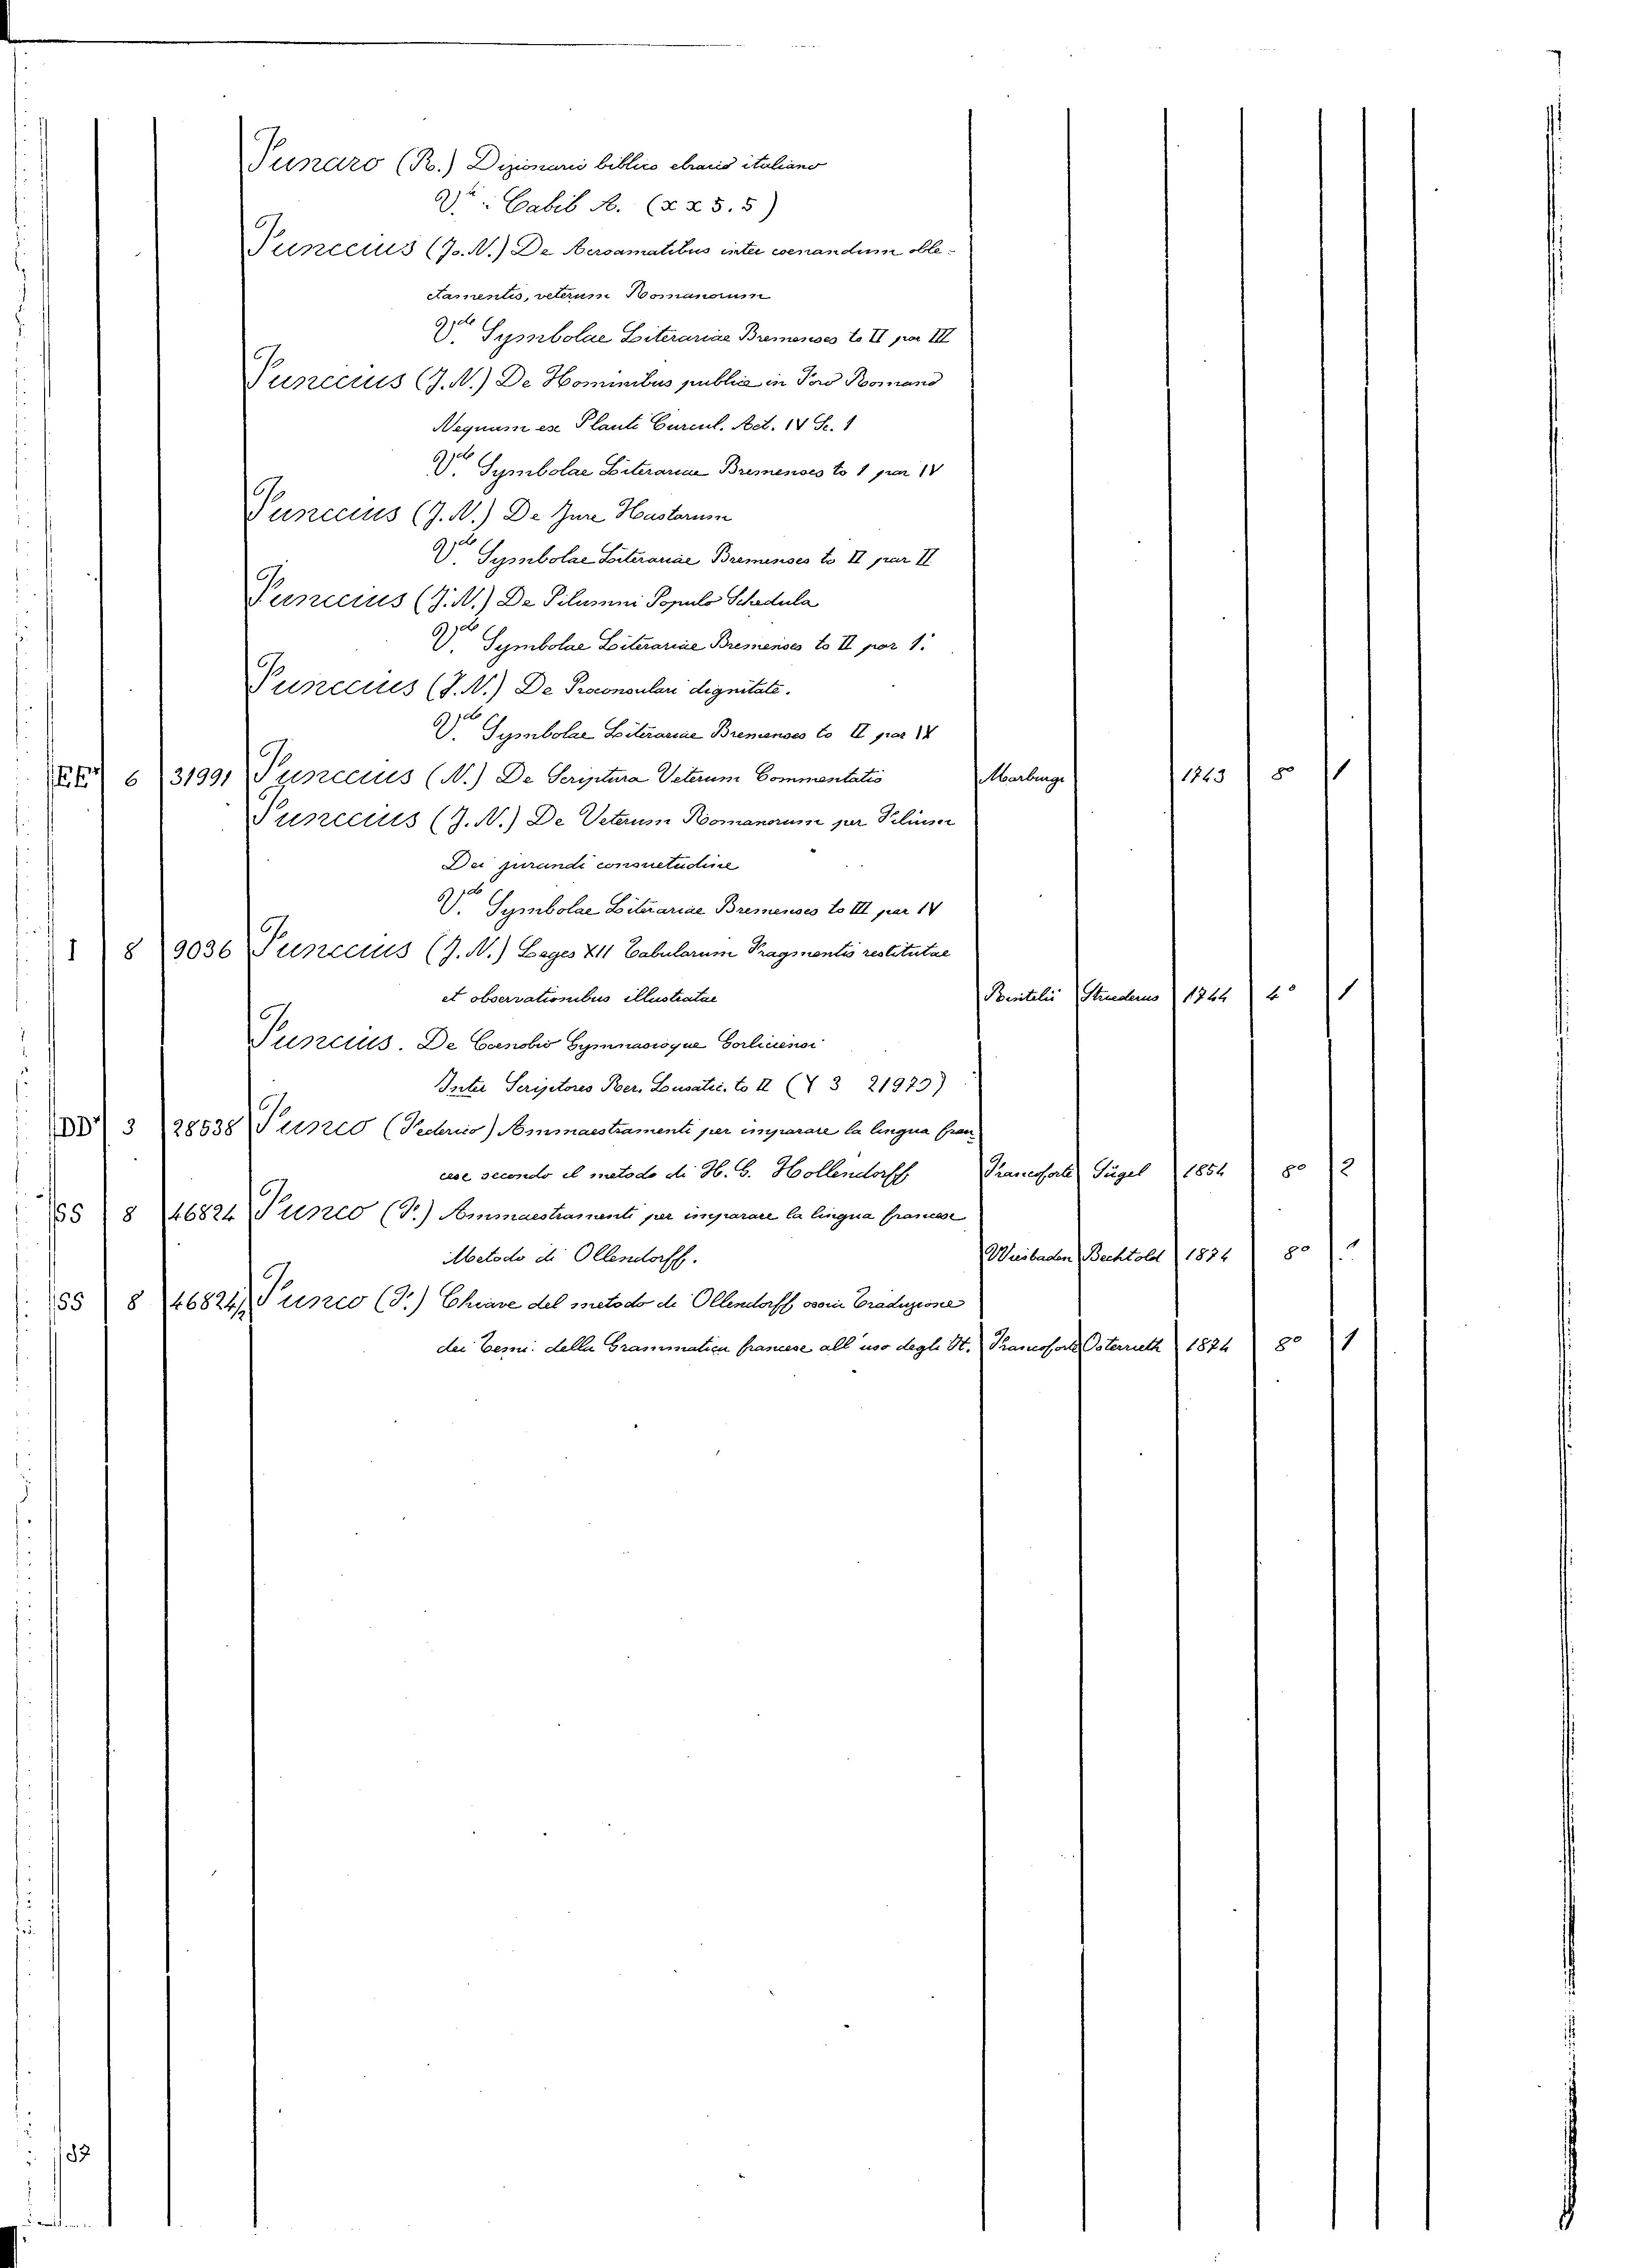 Funaro (R.) Dizionario biblico ebraico italiano
V.di: Cabib A. (X X 5. 5)
Funccius (Jo. N.) De Acroamatibus inter coenandum oble-
ctamentis, veterum Romanorum
V.de Symbolae Literariae Bremenses to II par III
Funccius (J. N.) De Hominibus publice in Foro Romano
Nequam ex Plauti Curcul. Act. IV Sc. 1
V.de Symbolae Literariae Bremenses to 1 par IV
Funccius (J. N.) De Jure Hastarum
V.de Symbolae Literariae Bremenses to II par II
Funccius (J. N.) De Pilumni Populo Schedula
V.de Symbolae Literariae Bremenses to II par 1.
Funccius (J. N.) De Proconsulari dignitate.
V.de Symbolae Literariae Bremenses to II par IV
EE 6 31991 Funccius (N.) De Scriptura Veterum Commentatio Marburgi 1743 8º 1
Funccius (J. N.) De Veterum Romanorum per Filium
Dei jurandi consuetudine
V.de Symbolae Literariae Bremenses to III par IV
I 8 9036 Funccius (J. N.) Leges XII Tabularum Fragmentis restitutae
et observationibus illustratae Rintelii Struederus 1744 4º 1
Funcius. De Coenobio Gymnasioque Gorlicensi
Inter Scriptores Rer. Lusatic. to II (Y 3 21973)
DD 3 28538 Funco (Federico) Ammaestramenti per imparare la lingua fran
cese secondo il metodo di H. G. Hollendorff Francoforte Fügel 1854 8º 2
55 8 46824 Funco (F.) Ammaestramenti per imparare la lingua francese
Metodo di Ollendorff. Wiesbaden Bechtold 1874 8º
55 8 46824 Funco (F.) Chiave del metodo di Ollendorff ossia Traduzione
dei Temi della Grammatica francese all'uso degli It. Francoforte Osterrieth 1874 8º 1